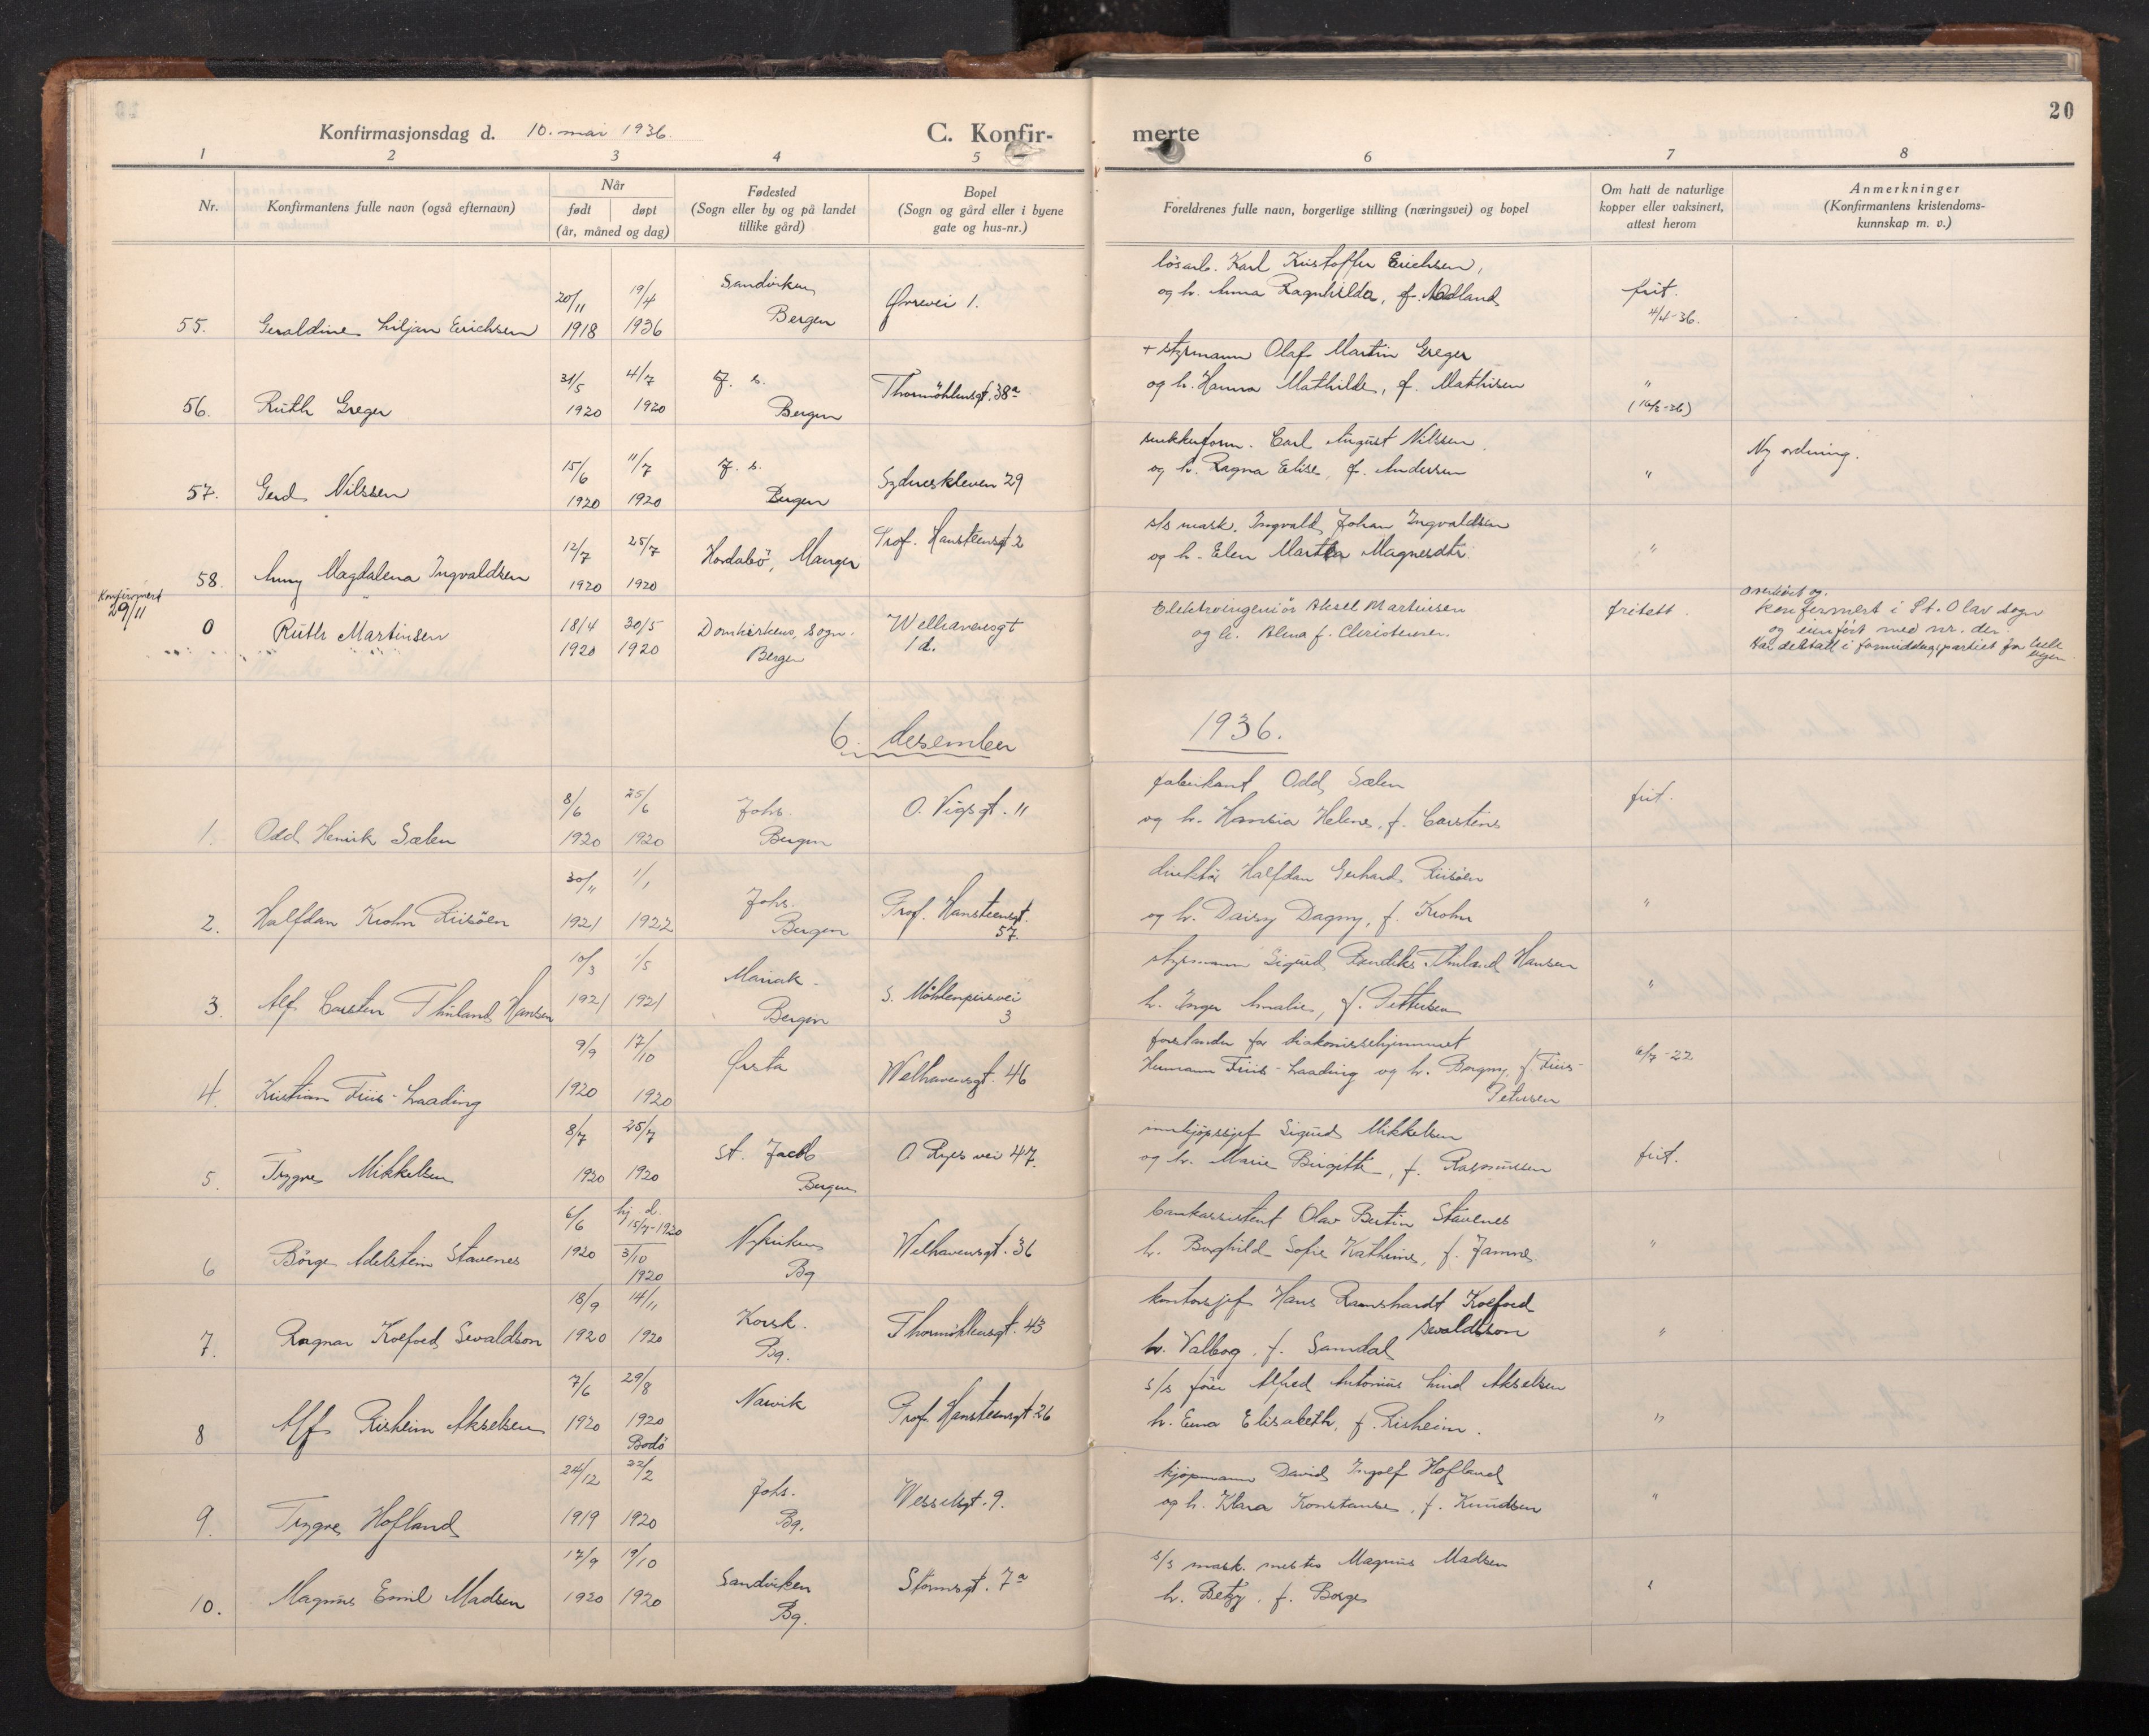 20
Konfirmasjonsdag d. 10. mai 1936.
C. Konfir-
merte
1 2 3 4 5 6 7 8
Nr.
Konfirmantens fulle navn (også efternavn)
Når
født døpt
(år, måned og dag)
Fødested
(Sogn eller by og på landet
tillike gård)
Bopel
(Sogn og gård eller i byene
gate og hus-nr.)
Foreldrenes fulle navn, borgerlige stilling (næringsvei) og bopel
Om hatt de naturlige
kopper eller vaksinert,
attest herom
Anmerkninger
(Konfirmantens kristendoms-
kunnskap m. v.)
løsarb. Karl Kristoffer Erichsen,
20/11 19/4 Sandviken Øvrevei 1. og h. Anna Ragnhilda, f. Nadland frit.
55. Geraldine Liljan Erichsen 1918 1936 Bergen 4/4-36.
+ styrmann Olaf Martin Greger
31/5 4/7 J. s. Thormöhlensgt. 38a og h. Hanna Mathilde, f. Mathisen "
56. Ruth Greger 1920 1920 Bergen
snekkerform. Carl August Nilssen
15/6 11/7 J. s. Sydneskleven 29 og h. Ragna Elise, f. Andersen " Ny ordning.
57. Gerd Nilssen 1920 1920 Bergen
s/s mask. Ingvald Johan Ingvaldsen
12/7 25/7 Hordabö, Manger Prof. Hansteensgt 2 og h. Elen Martha Magnesdtr. "
58. Anny Magdalena Ingvaldsen 1920 1920
Konfirmert
29/11
0 Ruth Martinsen 18/4 30/5 Domkirkens sogn. Welhavensgt Elektroingeniør Aksel Martinsen fritatt. overhørt og
1920 1920 Bergen 1 d. og h. Alma f. Christensen. konfirmert i St. Olav sogn
og innført med nr. der.
Har deltatt i formiddagspartiet for
6. desember 1936.
fabrikant Odd Sælen
8/6 25/6 Johs. O. Vigsgt. 11 og h. Hansia Helene, f. Carstens frit.
1. Odd Henrik Sælen 1920 1920 Bergen
direktör Halfdan Gerhard Riisöen
30/11 1/1 Johs. Prof. Hansteensgt. og h. Daisy Dagny, f. Krohn "
2. Halfdan Krohn Riisöen 1921 1922 Bergen 57.
styrmann Sigurd Bendiks Thuland Hansen
10/3 1/5 Mariak. S. Möhlenprisvei "
3. Alf Carsten Thuland Hansen 1921 1921 Bergen 3 h. Inger Amalie, f. Pettersen
forstander for diakonissehjemmet
9/9 17/10 Ørsta Welhavensgt. 46 Hermann Friis-Laading og h. Borgny, f. Friis- 6/7-22
4. Kristian Friis-Laading 1920 1920 Petersen
innkjøpssjef Sigurd Mikkelsen
8/7 25/7 St. Jacob O Ryes vei 47. og h. Marie Birgitte, f. Rasmussen frit.
5. Trygve Mikkelsen 1920 1920 Bergen
bankassistent Olav Bertin Stavenes
6/6 hj. d. 15/7-1920 Nykirken Welhavensgt. 36 h. Borghild Sofie Kathrine, f. Jamne. "
6 Börge Adelstein Stavenes 1920 3/10 1920 Bg
kontorsjef Hans Ramshardt Koefoed
18/9 14/11 Korsk. Thormöhlensgt. 43 Sevaldson "
7. Ragnar Koefoed Sevaldson 1920 1920 Bg. h. Valborg, f. Samdal
s/s fører Alfred Antonius Lind Akselsen
7/6 29/8 Narvik Prof. Hansteensgt. 26 h. Erna Elisabeth, f. Risheim. "
8 Alf Risheim Akselsen 1920 1920 Bodö
kjöpmann David Ingolf Hofland
24/12 22/2 Johs. Wesselsgt. 9. og h. Klara Konstanse, f. Knudsen "
9. Trygve Hofland 1919 1920 Bg.
s/s mask. mester Magnus Madsen
17/9 19/10 Sandviken Stormsgt. 7a h. Betzy, f. Borge "
10. Magnus Emil Madsen 1920 1920 Bg.